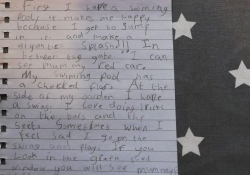 First I have a swimming
pool it makes me happy
because I get to jump
in it and make a
gigantic Splash!!! In
between the gate I can
see my mum red car.
My swimming pool has
a checked floor. At the
side of my garden I have
a swing I love doing tricks
on the bars and the
seets. Sometimes when I
feel sad I go on the
swing and play. If you
look in the green
window you will see mummy